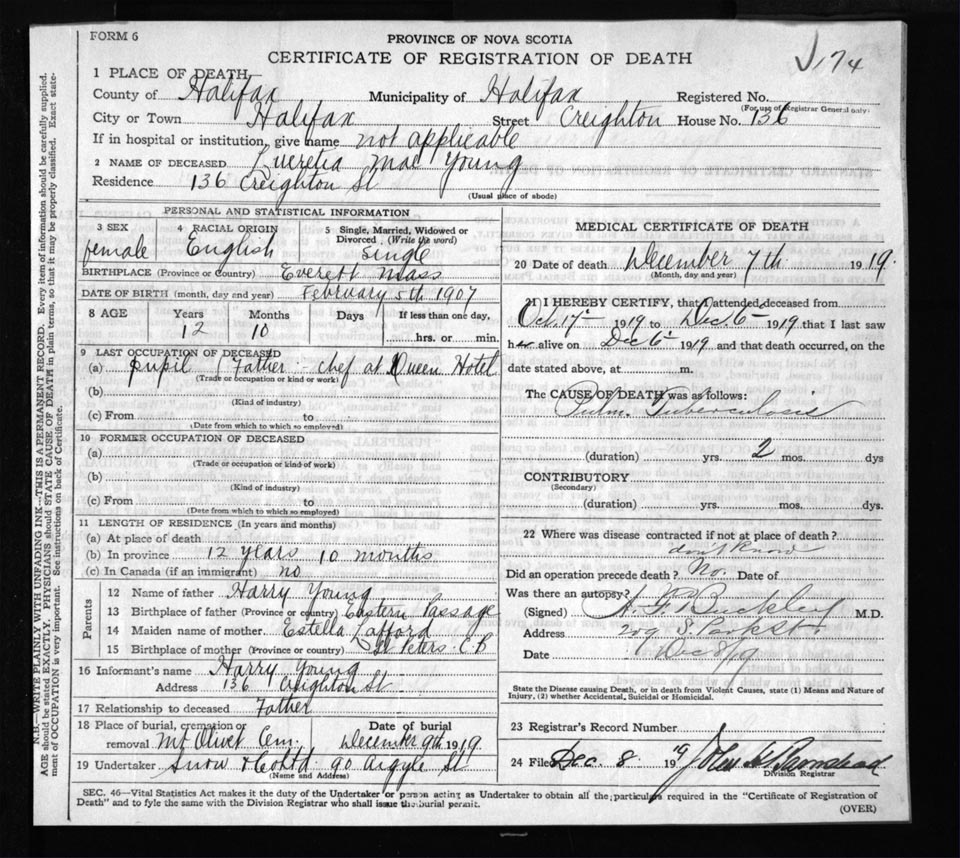 FORM 6
PROVINCE OF NOVA SCOTIA
CERTIFICATE OF REGISTRATION OF DEATH
174
1 PLACE OF DEATH
County of Halifax Municipality of Halifax Registered No.
(For use of Registrar General only)
City or Town Halifax Street Creighton House No. 136
If in hospital or institution, give name not applicable
2 NAME OF DECEASED Lucretia Mae Young
Residence 136 Creighton St
(Usual place of abode)
PERSONAL AND STATISTICAL INFORMATION
3 SEX female 4 RACIAL ORIGIN English 5 Single, Married, Widowed or Divorced (Write the word) Single
BIRTHPLACE (Province or Country) Everett Mass
DATE OF BIRTH (month, day and year) February 5th 1907
8 AGE Years 12 Months 10 Days If less than one day, ......hrs. or ......min.
9 LAST OCCUPATION OF DECEASED
(a) pupil Father - chef at Queen Hotel
(Trade or occupation or kind of work)
(b)
(Kind of industry)
(c) From to
(Date from which to which so employed)
10 FORMER OCCUPATION OF DECEASED
(a)
(Trade or occupation or kind of work)
(b)
(Kind of industry)
(c) From to
(Date from which to which so employed)
11 LENGTH OF RESIDENCE (In years and months)
(a) At place of death
(b) In province 12 years 10 months
(c) In Canada (if an immigrant) no
Parents
12 Name of father Harry Young
13 Birthplace of father (Province or country) Eastern Passage
14 Maiden name of mother. Estella Lafford
15 Birthplace of mother (Province or country) St Peters C B
16 Informant's name Harry Young
Address 136 Creighton St
17 Relationship to deceased Father
18 Place of burial, cremation or removal Mt Olivet Cem. Date of burial December 9th 1919.
19 Undertaker Snow & Co Ltd 90 Argyle St
(Name and Address)
MEDICAL CERTIFICATE OF DEATH
20 Date of death December 7th 1919.
(Month, day and year)
21 I HEREBY CERTIFY, that I attended deceased from
Oct. 17 1919 to Dec. 6 1919 that I last saw
her alive on Dec 6 1919 and that death occurred, on the
date stated above, at m.
The CAUSE OF DEATH was as follows:
Pulm. Tuberculosis
(duration) yrs. 2 mos. dys
CONTRIBUTORY
(Secondary)
(duration) yrs. mos. dys.
22 Where was disease contracted if not at place of death?
don't know
Did an operation precede death? No. Date of
Was there an autopsy?
(Signed) A. F. Buckley M.D.
Address 209 S. Park St.
Date Dec 8/19
State the Disease causing Death, or in death from Violent Causes, state (1) Means and Nature of Injury, (2) whether Accidental, Suicidal or Homicidal.
23 Registrar's Record Number
24 Filed Dec. 8 1919 John
Division Registrar
SEC. 46—Vital Statistics Act makes it the duty of the Undertaker or person acting as Undertaker to obtain all the particulars required in the "Certificate of Registration of
Death" and to fyle the same with the Division Registrar who shall issue the burial permit.
(OVER)
N.B.—WRITE PLAINLY WITH UNFADING INK—THIS IS A PERMANENT RECORD. Every item of information should be carefully supplied.
AGE should be stated EXACTLY. PHYSICIANS should STATE CAUSE OF DEATH in plain terms, so that it may be properly classified. Exact state-
ment of OCCUPATION is very important. See instructions on back of Certificate.